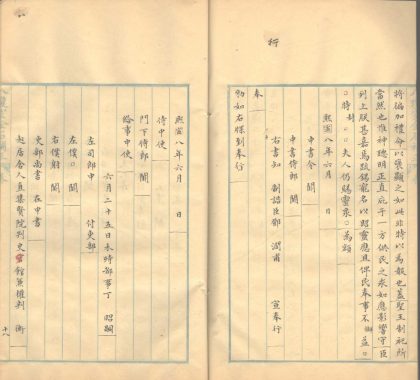 將徧加禮命以褒顯之如此非特以為報也蓋聖王制祀所
當然也惟神聰明正直庇于一方供民之求如應影響守臣
到上朕甚嘉焉疏錫寵名以昭靈應且俾民奉事不懈益○
○特封○○夫人仍賜靈泉○為額
熙寧八年六月 日
中書令 闕
中書侍郎 闕
右書知 制誥臣鄧 潤甫 宣奉行
奉
勅如右牒到奉行
熙寧八年六月 日
侍中使
門下侍郎 闕
給事中使
六月二十五日未時都事丁 昭嗣
左司郎中 付吏部
左僕○ 闕
右僕射 闕
吏部尚書 在中書
起居舍人直集賢院判吏館兼權判 衝
十八